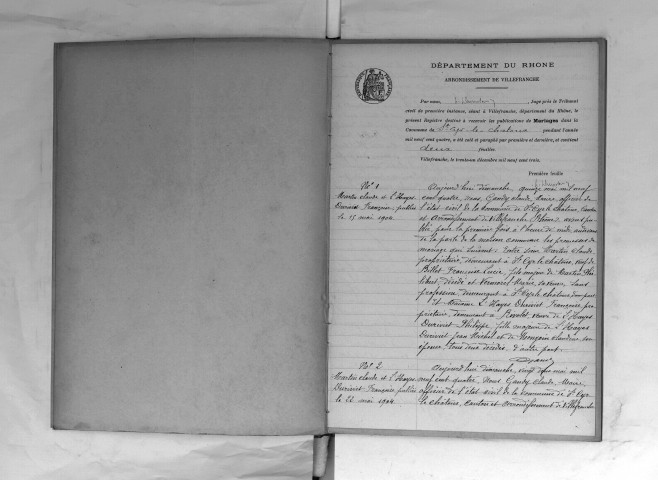 DÉPARTEMENT DU RHONE
ARRONDISSEMENT DE VILLEFRANCHE
Par nous, juge près le Tribunal
civil de première instance, séant à Villefranche, département du Rhône, le
présent Registre destiné à recevoir les publications de Mariages dans la
Commune de St Cyr-le-Chatoux pendant l'année
mil neuf cent quatre, a été coté et paraphé par première et dernière, et contient
deux feuilles.
Villefranche, le trente-un décembre mil neuf cent trois.
Première feuille
No 1
Martin Claude et L'Hayes
Durivet Françoise, publiée
le 15 mai 1904
Aujourd'hui dimanche, quinze mai mil neuf
cent quatre, nous, Gandy Claude, maire officier de
l'état civil de la commune de St Cyr le Chatoux, canton
et arrondissement de Villefranche, Rhône, avons pu-
blié, pour la première fois, à l'heure de midi, audevant
de la porte de la maison commune les promesses de
mariage qui suivent: Entre sieur Martin Claude,
propriétaire, demeurant à St Cyr le Chatoux, veuf de
Billet Françoise Lucie, fils majeur de Martin Phi-
libert décédé et Vermorel Marie, sa veuve, sans
profession, demeurant à St Cyr le Chatoux, d'une part
Et Madame L'Hayes Durivet Françoise, pro-
priétaire, demeurant à Rivolet, veuve de L'Hayes
Durivet Philippe, fille majeure de L'Hayes
Durivet Jean Michel et de Claudine son
épouse, tous deux décédés, d'autre part.
No 2
Martin Claude et L'Hayes
Durivet Françoise publiée
le 22 mai 1904
Aujourd'hui dimanche, vingt deux mai mil
neuf cent quatre, Nous Gandy Claude, Maire
officier de l'état civil de la commune de St Cyr
le Chatoux, canton et arrondissement de Villefranche